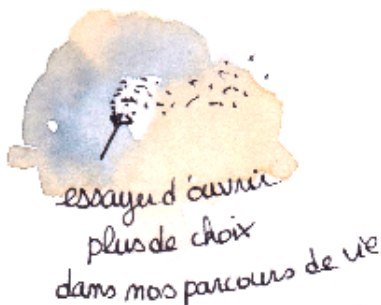 essayer d'ouvrir
plus de choix
dans nos parcours de vie